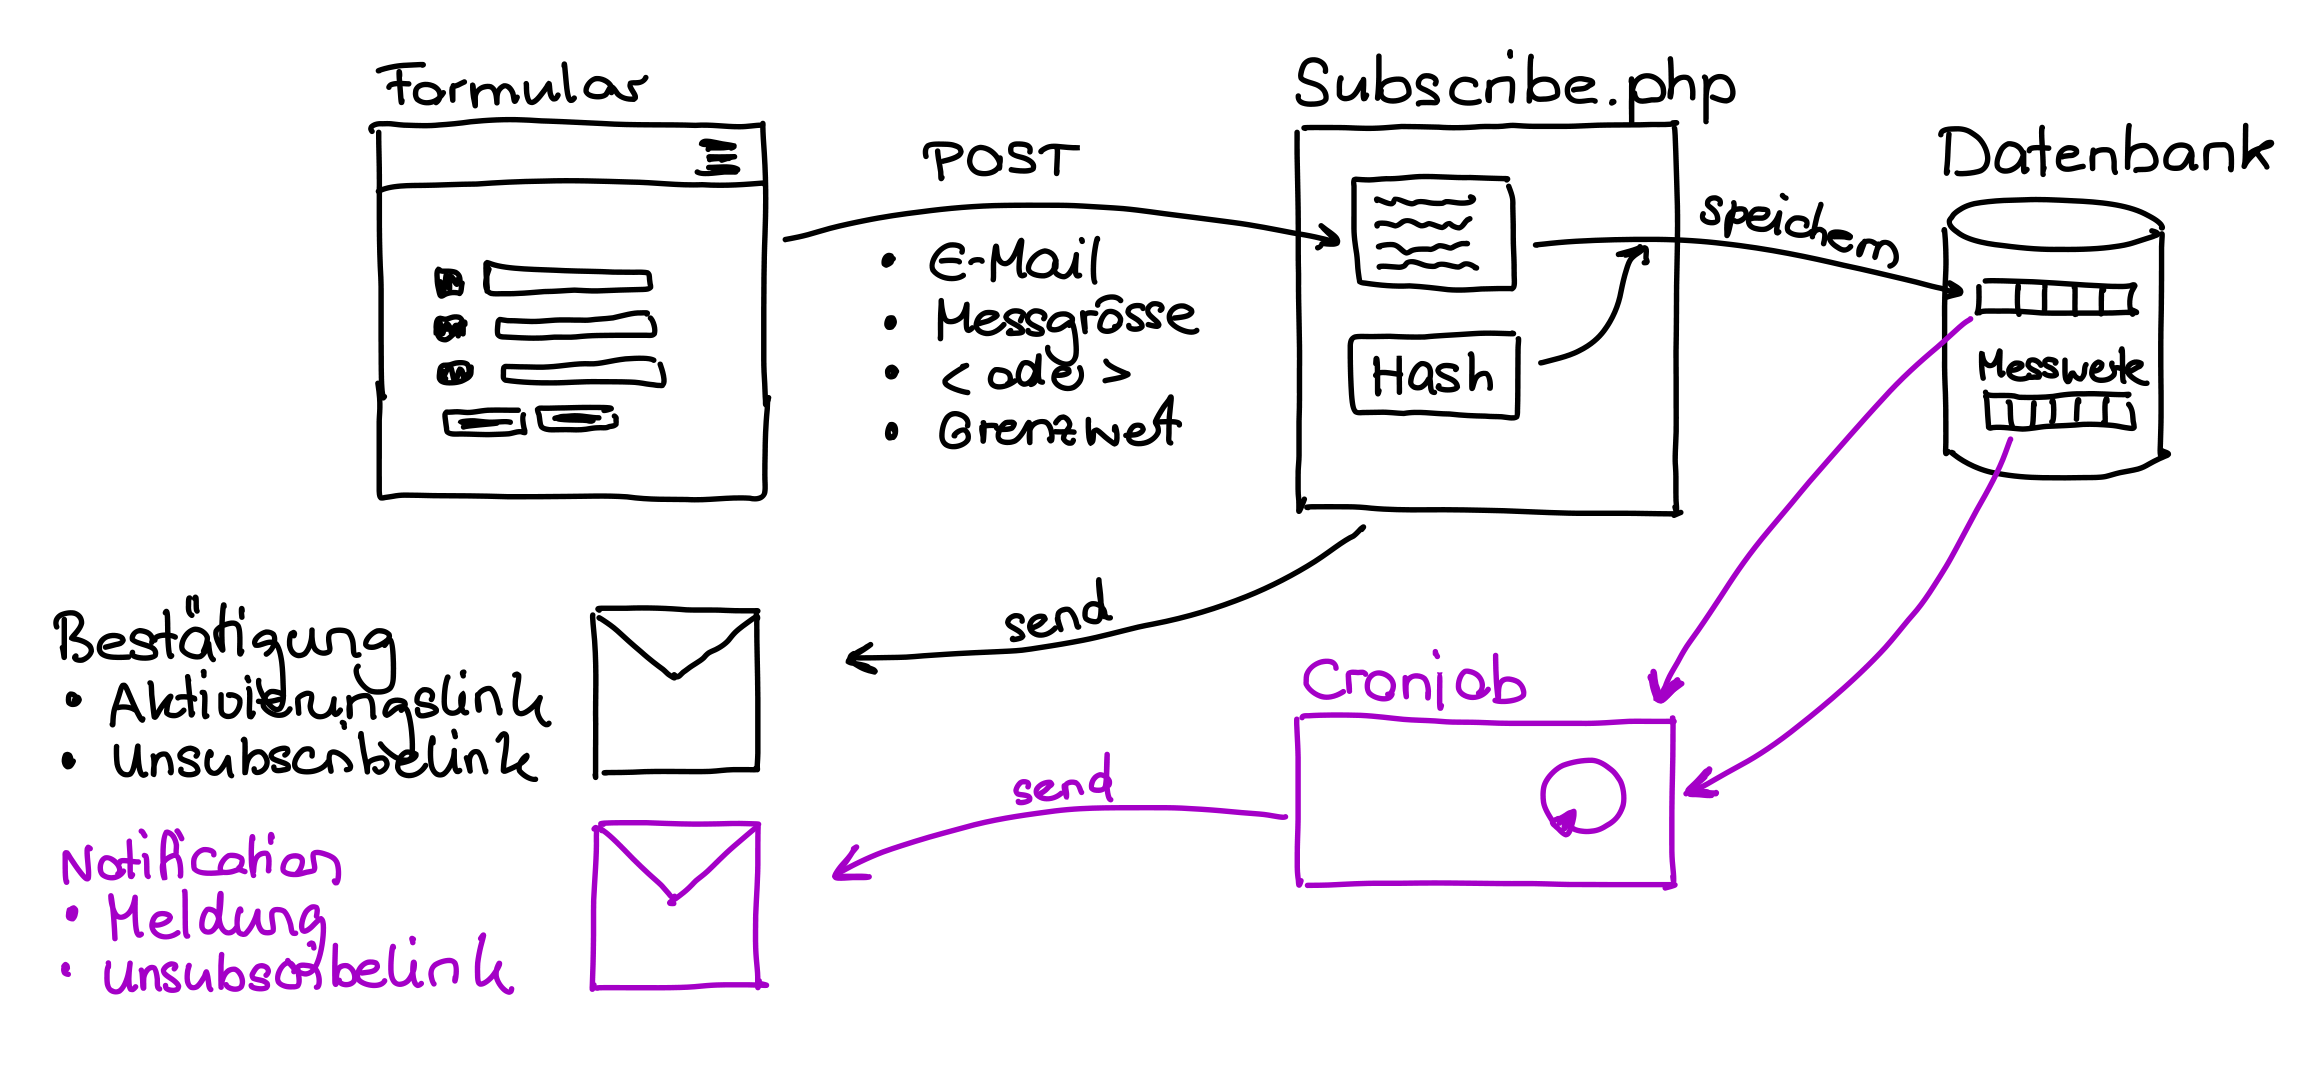 Formular
POST
• E-Mail
• Messgrösse
• < ode >
• Grenzwert
Subscribe.php
Hash
speichern
Datenbank
Messwerte
send
Bestätigung
• Aktivierungslink
• Unsubscribelink
Cronjob
send
Notification
• Meldung
• Unsubscribelink